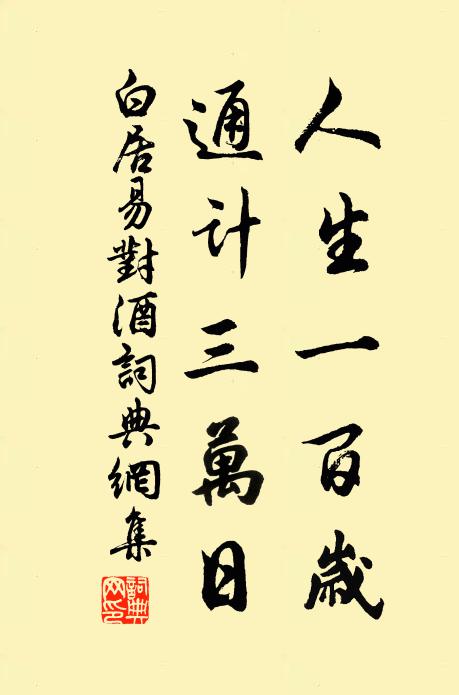 人生一百歲
通計三萬日
白居易對酒詞典網集
詞典網印